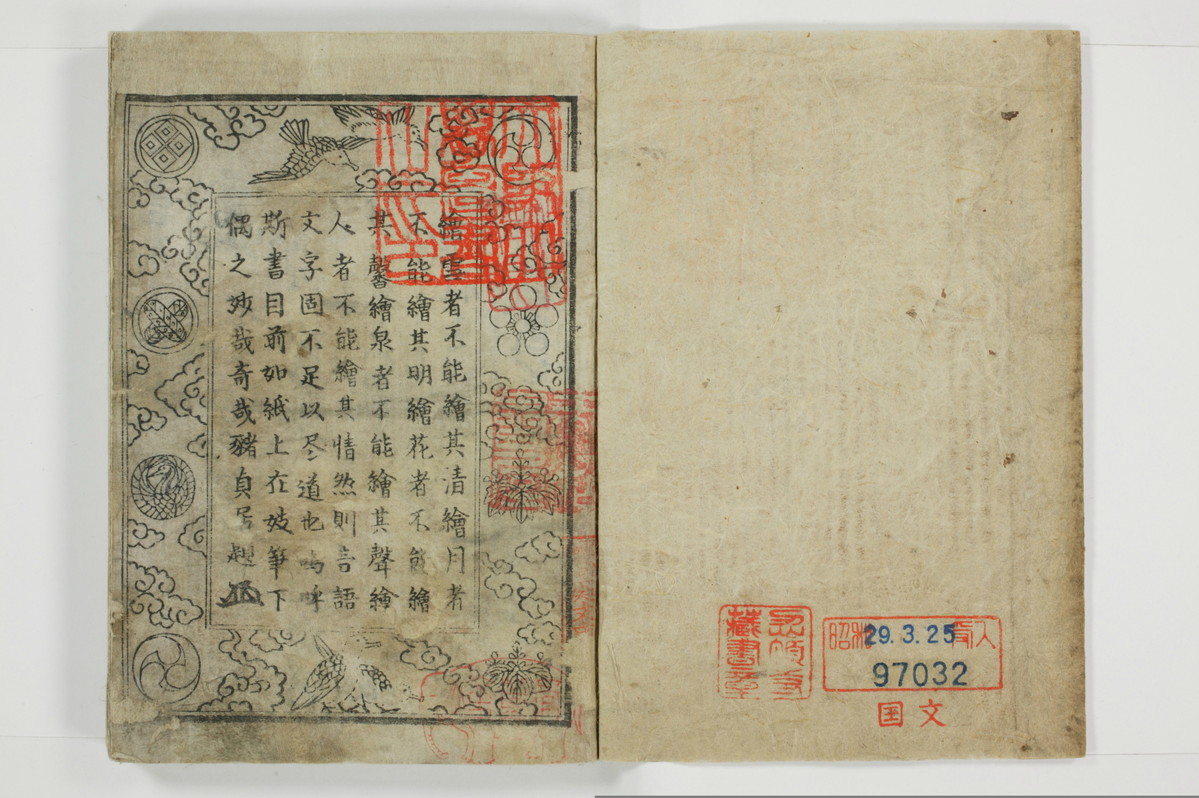 繪雪者不能繪其清繪月者
不能繪其明繪花者不能繪
其馨繪泉者不能繪其聲繪
人者不能繪其情然則言語
文字固不足以尽道也嗚呼
斯書目前如紙上在妓筆下
偶之妙哉奇哉豬貞居題
昭和 29.3.25 購入
97032
国文
藏書章